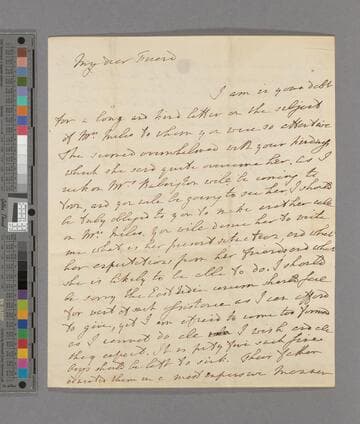 My dear Friend
I am in your debt
for a long and kind letter on the subject
of Mrs. Miles to whom you were so attentive
She seemed overwhelmed with your kindness
which she said quite overcame her, as I
reckon Mrs. will be coming to
you, and you will be going to see her I should
be truly obliged to you to make another call
on Mrs. Miles, you will desire her to write
me what is her present situation, and what
her expectations from her friends and what
she is likely to be able to do. I should
be sorry the East India concern should fail
for want of such assistance as I can afford
to give, yet I am afraid to come too forward
as I cannot do all I wish and all
they expect. It is pity four such fine
boys should be left to sink. Their Father
educated them in a most expensive manner